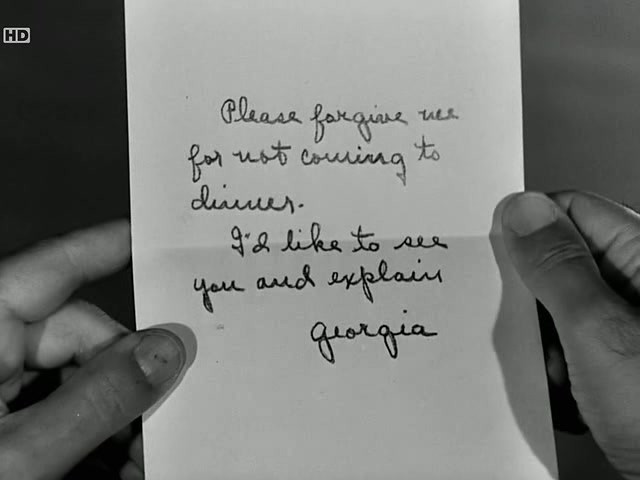 HD
Please forgive me
for not coming to
dinner.
I'd like to see
you and explain
Georgia